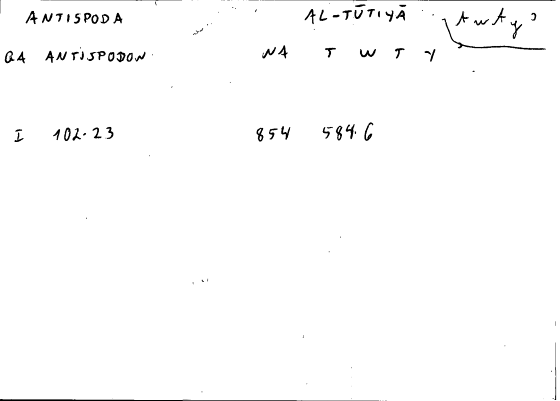 ANTISPODA AL-TŪTIYĀ
QA ANTISPODON NA T W T Y
I 102.23 854 584.6